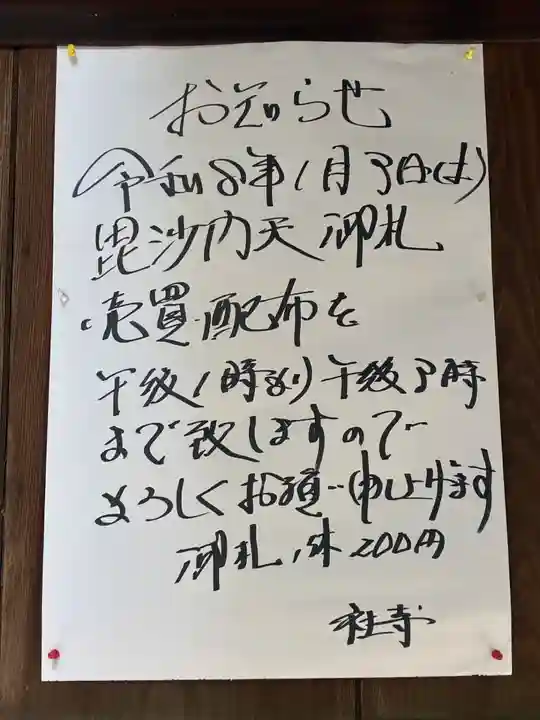 お知らせ
令和8年1月3日(土)
毘沙門天御札
売買・配布を
午後1時より午後3時
まで致しますので
よろしくお願い申し上げます
御札1体200円
社寺